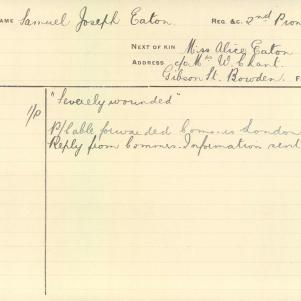 NAME Samuel Joseph Eaton. REG. &C. 2nd Pion
NEXT OF KIN Miss Alice Eaton
ADDRESS c/o Mrs W Chant.
Gibson St. Bowden. F
"Severely wounded"
1/P P/Cable forwarded Comoners London
Reply from Commrs. Information sent